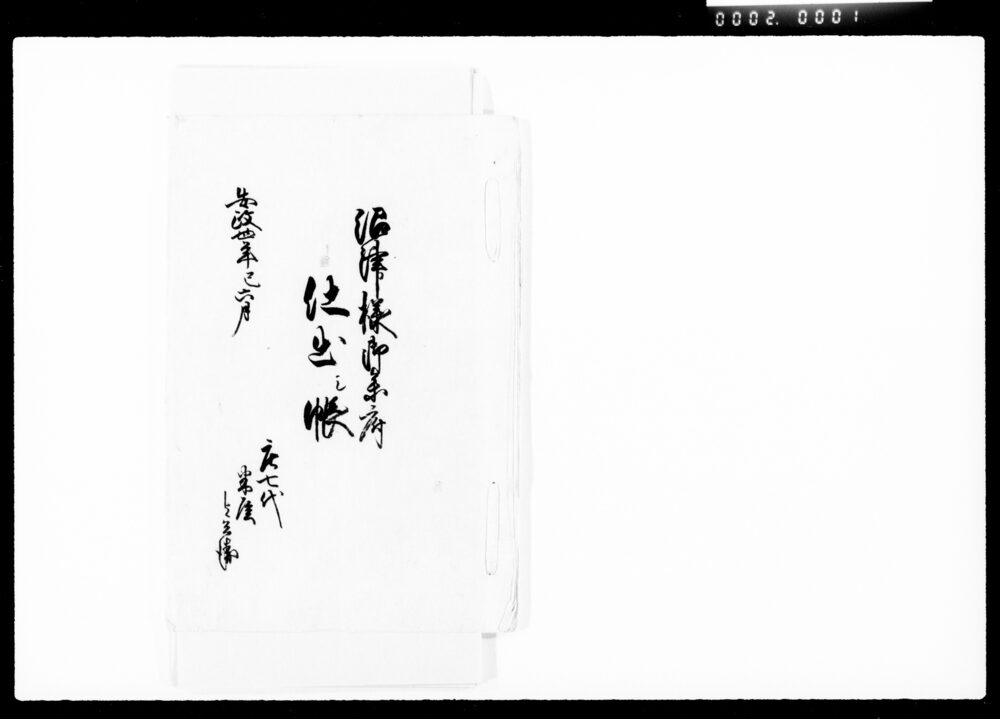 0002.0001
沼津様御参府
仕出之帳
安政四年巳六月
庄七代
米屋